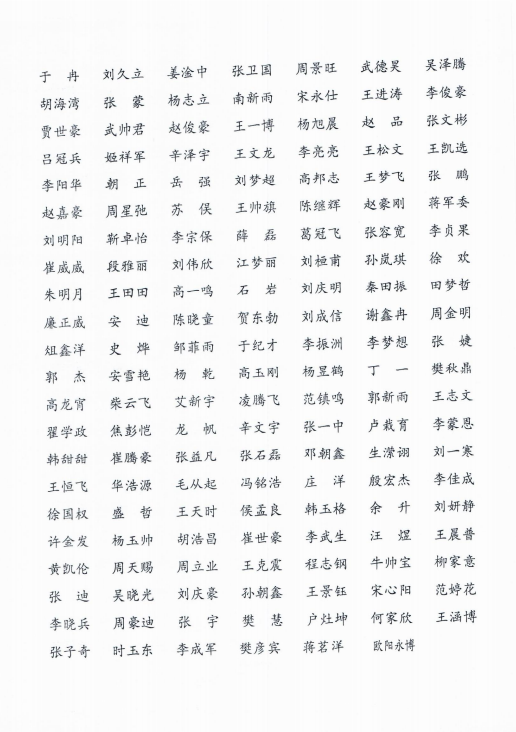 于　冉　刘久立　姜淦中　张卫国　周景旺　武德昊　吴泽腾
胡海湾　张　蒙　杨志立　南新雨　宋永仕　王进涛　李俊豪
贾世豪　武帅君　赵俊豪　王一博　杨旭晨　赵　品　张文彬
吕冠兵　姬祥军　辛泽宇　王文龙　李亮亮　王松文　王凯选
李阳华　朝　正　岳　强　刘梦超　高邦志　王梦飞　张　鹏
赵嘉豪　周星弛　苏　俣　王帅旗　陈继辉　赵豪刚　蒋军委
刘明阳　靳卓怡　李宗保　薛　磊　葛冠飞　张容宽　李贞果
崔威威　段雅丽　刘伟欣　江梦丽　刘桓甫　孙岚琪　徐　欢
朱明月　王田田　高一鸣　石　岩　刘庆明　秦田振　田梦哲
廉正威　安　迪　陈晓童　贺东勃　刘成信　谢鑫冉　周金明
俎鑫洋　史　烨　邹菲雨　于纪才　李振洲　李梦想　张　婕
郭　杰　安雪艳　杨　乾　高玉刚　杨昱鹤　丁　一　樊秋鼎
高龙宵　柴云飞　艾新宇　凌腾飞　范镇鸣　郭新雨　王志文
翟学政　焦彭恺　龙　帆　辛文宇　张一中　卢栽育　李蒙恩
韩甜甜　崔腾豪　张益凡　张石磊　邓朝鑫　生濛诩　刘一寒
王恒飞　华浩源　毛从起　冯铭浩　庄　洋　殷宏杰　李佳成
徐国权　盛　哲　王天时　侯孟良　韩玉格　余　升　刘妍静
许金发　杨玉帅　胡浩昌　崔世豪　李武生　汪　煜　王晨普
黄凯伦　周天赐　周立业　王克震　程志钢　牛帅宝　柳家意
张　迪　吴晓光　刘庆豪　孙朝鑫　王景钰　宋心阳　范婷花
李晓兵　周豪迪　张　宇　樊　慧　户灿坤　何家欣　王涵博
张子奇　时玉东　李成军　樊彦宾　蒋茗洋　欧阳永博